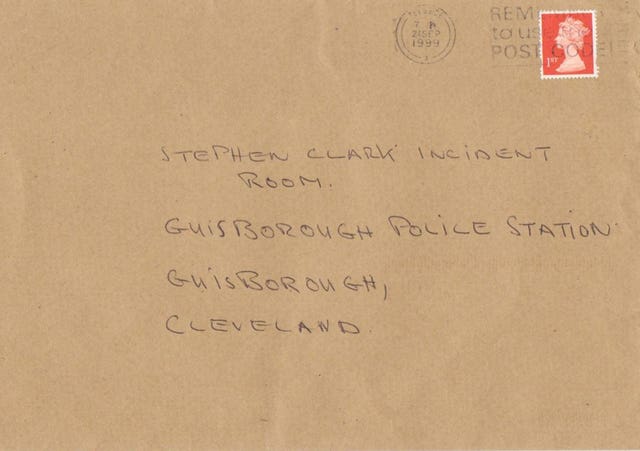 7
24 SEP
1999
REM
to use
POST CODE!
1ST
STEPHEN CLARK INCIDENT
ROOM.
GUISBOROUGH POLICE STATION
GUISBOROUGH,
CLEVELAND.